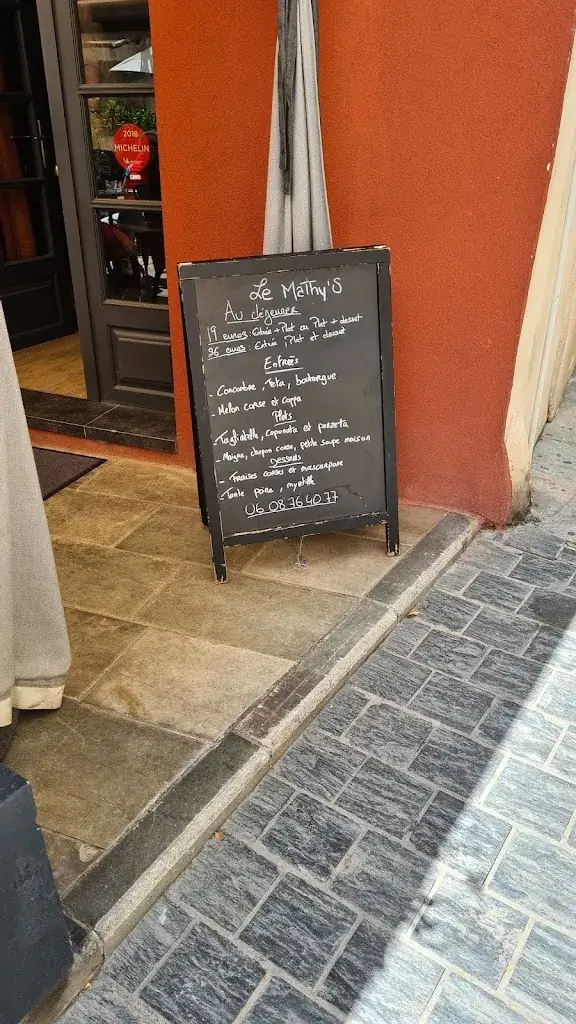 2018
MICHELIN
Le Mathy'S
Au déjeuner
19 euros : Entrée + Plat ou Plat + dessert
26 euros : Entrée, Plat et dessert
Entrées
- Concombre, feta, boutargue
- Melon corse et coppa
Plats
- Tagliatelle, caponata et panzeta
- Maigre, chapon corse, petite soupe maison
Desserts
- Fraises corses et mascarpone
- Tarte poire, myrtille
06 08 76 40 77